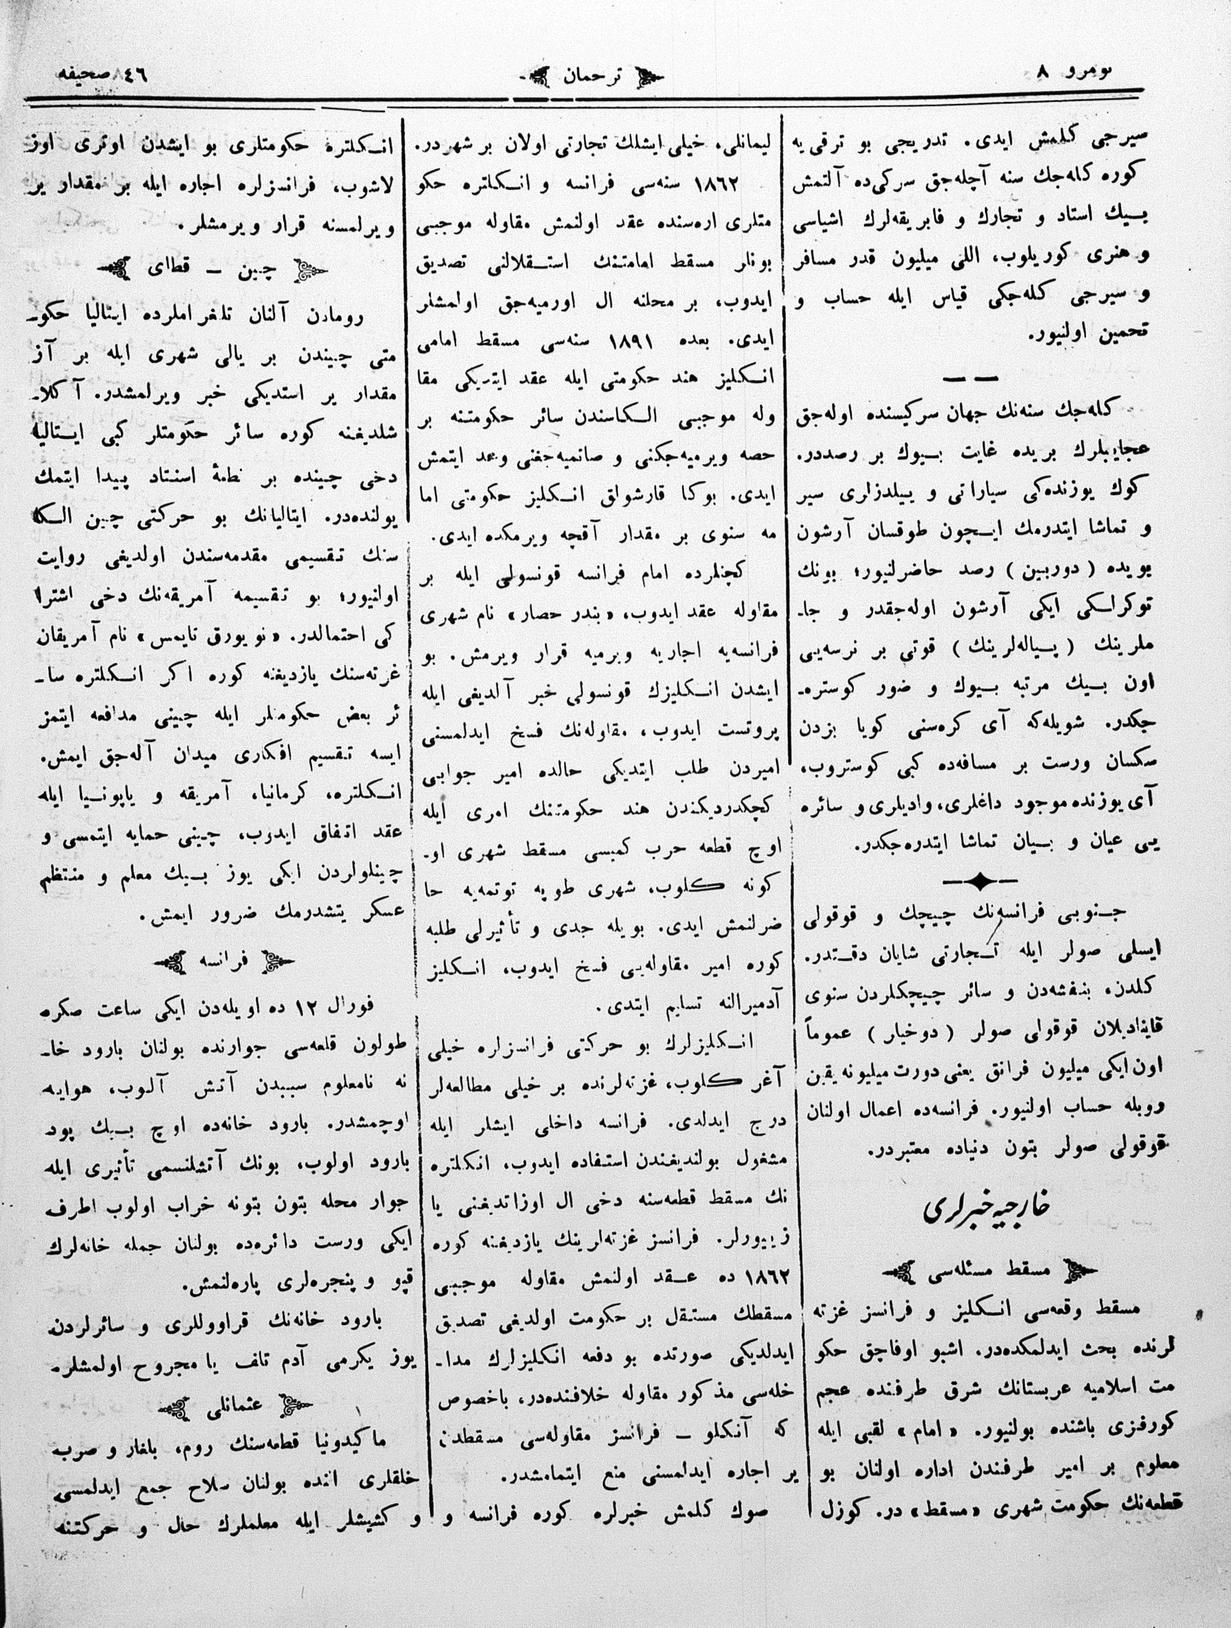 نومرو ٨
ترجمان
٨٤٦ صحیفه
سیرجی كلمش ایدی. تدریجی بو ترقی یه
كوره كله‌جك سنه آچله‌جق سركی‌ده آلتمش
بیك استاد و تجارك و فابریقه‌لرك اشیاسی
و هنری كوریلوب، اللی میلیون قدر مسافر
و سیرجی كله‌جكی قیاس ایله حساب و
تحمین اولنیور.
كله‌جك سنه‌نك جهان سركیسنده اوله‌جق
عجایبلرك بریده غایت بیوك بر رصددر.
كوك یوزنده‌كی سیاراتی و ییلدزلری سیر
و تماشا ایتدرمك ایچون طوقسان آرشون
بویده ( دوربین ) رصد حاضرلنیور؛ بونك
توكراكی ایكی آرشون اوله‌جقدر و جا-
ملرینك ( پیاله‌لرینك ) قوتی بر نرسه‌یی
اون بیك مرتبه بیوك و ضور كوستره-
جكدر. شویله‌كه آی كره‌سنی كویا بزدن
سكسان ورست بر مسافه‌ده كبی كوستروب،
آی یوزنده موجود داغلری، وادیلری و سائره
یی عیان و بیان تماشا ایتدره‌جكدر.
جنوبی فرانسه‌نك چیچك و قوقولی
ایسلی صولر ایله تجارتی شایان دقتدر.
كلدن، بنفشه‌دن و سائر چیچكلردن سنوی
قاینادیلان قوقولی صولر ( دوخیار ) عموماً
اون ایكی میلیون فرانق یعنی دورت میلیونه یقین
روبله حساب اولنیور. فرانسه‌ده اعمال اولنان
قوقولی صولر بتون دنیاده معتبردر.
خارجیه خبرلری
مسقط مسئله‌سی
مسقط وقعه‌سی انكلیز و فرانسز غزته
لرنده بحث ایدلمكده‌در. اشبو اوفاچق حكو
مت اسلامیه عربستانك شرق طرفنده عجم
كورفزی باشنده بولنیور. «امام» لقبی ایله
معلوم بر امیر طرفندن اداره اولنان بو
قطعه‌نك حكومت شهری «مسقط» در. كوزل
لیمانلی، خیلی ایشلك تجارتی اولان بر شهردر.
١٨٦٢ سنه‌سی فرانسه و انكلتره حكو
متلری اره‌سنده عقد اولنمش مقاوله موجبی
بونلر مسقط امامتنك استقلالنی تصدیق
ایدوب، بر محلنه ال اورمیه‌جق اولمشلر
ایدی. بعده ١٨٩١ سنه‌سی مسقط امامی
انكلیز هند حكومتی ایله عقد ایتدیكی مقا
وله موجبی الكاسندن سائر حكومتنه بر
حصه ویرمیه‌جكنی و صاتمیه‌جغنی وعد ایتمش
ایدی. بوكا قارشولق انكلیز حكومتی اما
مه سنوی بر مقدار آقچه ویرمكده ایدی.
كچنلرده امام فرانسه قونسولی ایله بر
مقاوله عقد ایدوب، «بندر حصار» نام شهری
فرانسه‌یه اجاریه ویرمیه قرار ویرمش. بو
ایشدن انكلیزك قونسولی خبر آلدیغی ایله
پروتست ایدوب، مقاوله‌نك فسخ ایدلمسنی
امیردن طلب ایتدیكی حالده امیر جوابی
كچكدردیكندن هند حكومتنك امری ایله
اوچ قطعه حرب كمیسی مسقط شهری او-
كونه كلوب، شهری طوپه توتمه‌یه حا
ضرلنمش ایدی. بویله جدی و تأثیرلی طلبه
كوره امیر مقاوله‌یی فسخ ایدوب، انكلیز
آدمیرالنه تسلیم ایتدی.
انكلیزلرك بو حركتی فرانسزلره خیلی
آغر كلوب، غزته‌لرنده بر خیلی مطالعه‌لر
درج ایدلدی. فرانسه داخلی ایشلر ایله
مشغول بولندیغندن استفاده ایدوب، انكلتره
نك مسقط قطعه‌سنه دخی ال اوزاتدیغنی یا
زییورلر. فرانسز غزته‌لرینك یازدیغنه كوره
١٨٦٢ ده عقد اولنمش مقاوله موجبی
مسقطك مستقل بر حكومت اولدیغی تصدیق
ایدلدیكی صورتده بو دفعه انكلیزلرك مدا-
خله‌سی مذكور مقاوله خلافنده‌در، باخصوص
كه آنكلو ـ فرانسز مقاوله‌سی مسقطدن
یر اجاره ایدلمسنی منع ایتمامشدر.
صوك كلمش خبرلره كوره فرانسه و
انكلتره حكومتلری بو ایشدن اوتری اوز
لاشوب، فرانسزلره اجاره ایله بر مقدار یر
ویرلمسنه قرار ویرمشلر.
چین ـ قطای
رومادن آلنان تلغراملرده ایتالیا حكو-
متی چیندن بر یالی شهری ایله بر آز
مقدار یر استدیكی خبر ویرلمشدر. آكلا-
شلدیغنه كوره سائر حكومتلر كبی ایتالیا
دخی چینده بر نطهٔ استناد پیدا ایتمك
یولنده‌در. ایتالیانك بو حركتی چین الكا
سنك تقسیمی مقدمه‌سندن اولدیغی روایت
اولنیور؛ بو تقسیمه آمریقه‌نك دخی اشترا
كی احتمالدر. «نویورق تایمس» نام آمریقان
غزته‌سنك یازدیغنه كوره اكر انكلتره سا-
ئر بعض حكومتلر ایله چینی مدافعه ایتمز
ایسه تقسیم افكاری میدان آله‌جق ایمش.
انكلتره، كرمانیا، آمریقه و یاپونیا ایله
عقد اتفاق ایدوب، چینی حمایه ایتمسی و
چینلولردن ایكی یوز بیك معلم و منتظم
عسكر یتشدرمك ضرور ایمش.
فرانسه
فورال ١٢ ده اویله‌دن ایكی ساعت صكره
طولون قلعه‌سی جوارنده بولنان بارود خا-
نه نامعلوم سببدن آتش آلوب، هوایه
اوچمشدر. بارود خانه‌ده اوچ بیك پود
بارود اولوب، بونك آتشلنسمی تأثیری ایله
جوار محله بتون بتونه خراب اولوب اطرف
ایكی ورست دائره‌ده بولنان جمله خانه‌لرك
قپو و پنجره‌لری پاره‌لنمش.
بارود خانه‌نك قراووللری و سائرلردن
یوز یكرمی آدم تلف یا مجروح اولمشلر.
عثمانلی
ماكیدونیا قطعه‌سنك روم، بلغار و صرب
خلقلری النده بولنان سلاح جمع ایدلمسی
و كشیشلر ایله معلملرك حال و حركتنه